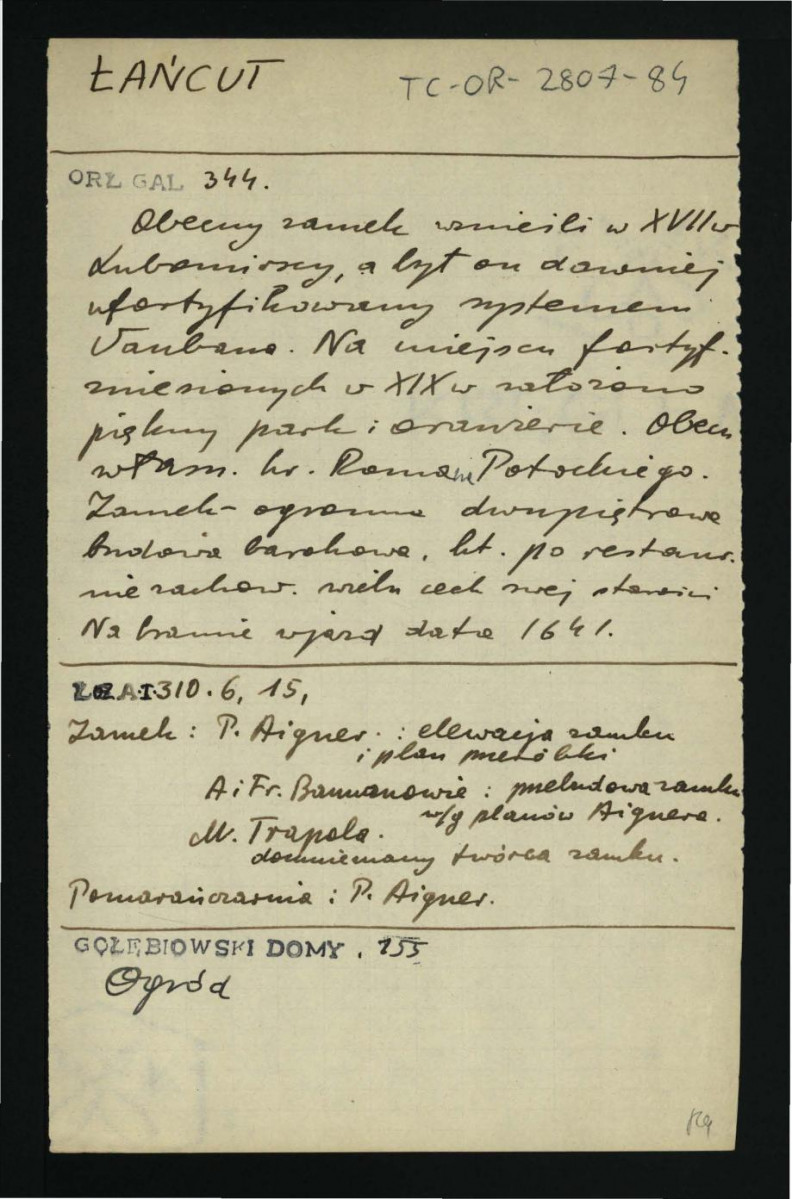 ŁAŃCUT
TC-OR- 2807-84
ORŁ GAL 344.
Obecny zamek wznieśli w XVII w
Lubomirscy, a był on dawniej
ufortyfikowany systemem
Vaubana. Na miejscu fortyf.
zniesionych w XIX w założono
piękny park i oranżerie. Obecn
własn. hr. Romana Potockiego.
Zamek - ogromna dwupiętrowa
budowa barokowa, kt. po restaur.
nie zachow. wielu cech swej starości
Na bramie wjazd data 1641.
310. 6, 15,
Zamek : P. Aigner. : elewacja zamku
i plan przeróbki
A i Fr. Baumanowie : przebudowa zamku
w/g planów Aignera.
M. Trapola.
domniemany twórca zamku.
Pomarańczarnia : P. Aigner.
GOŁĘBIOWSKI DOMY . 155
Ogród